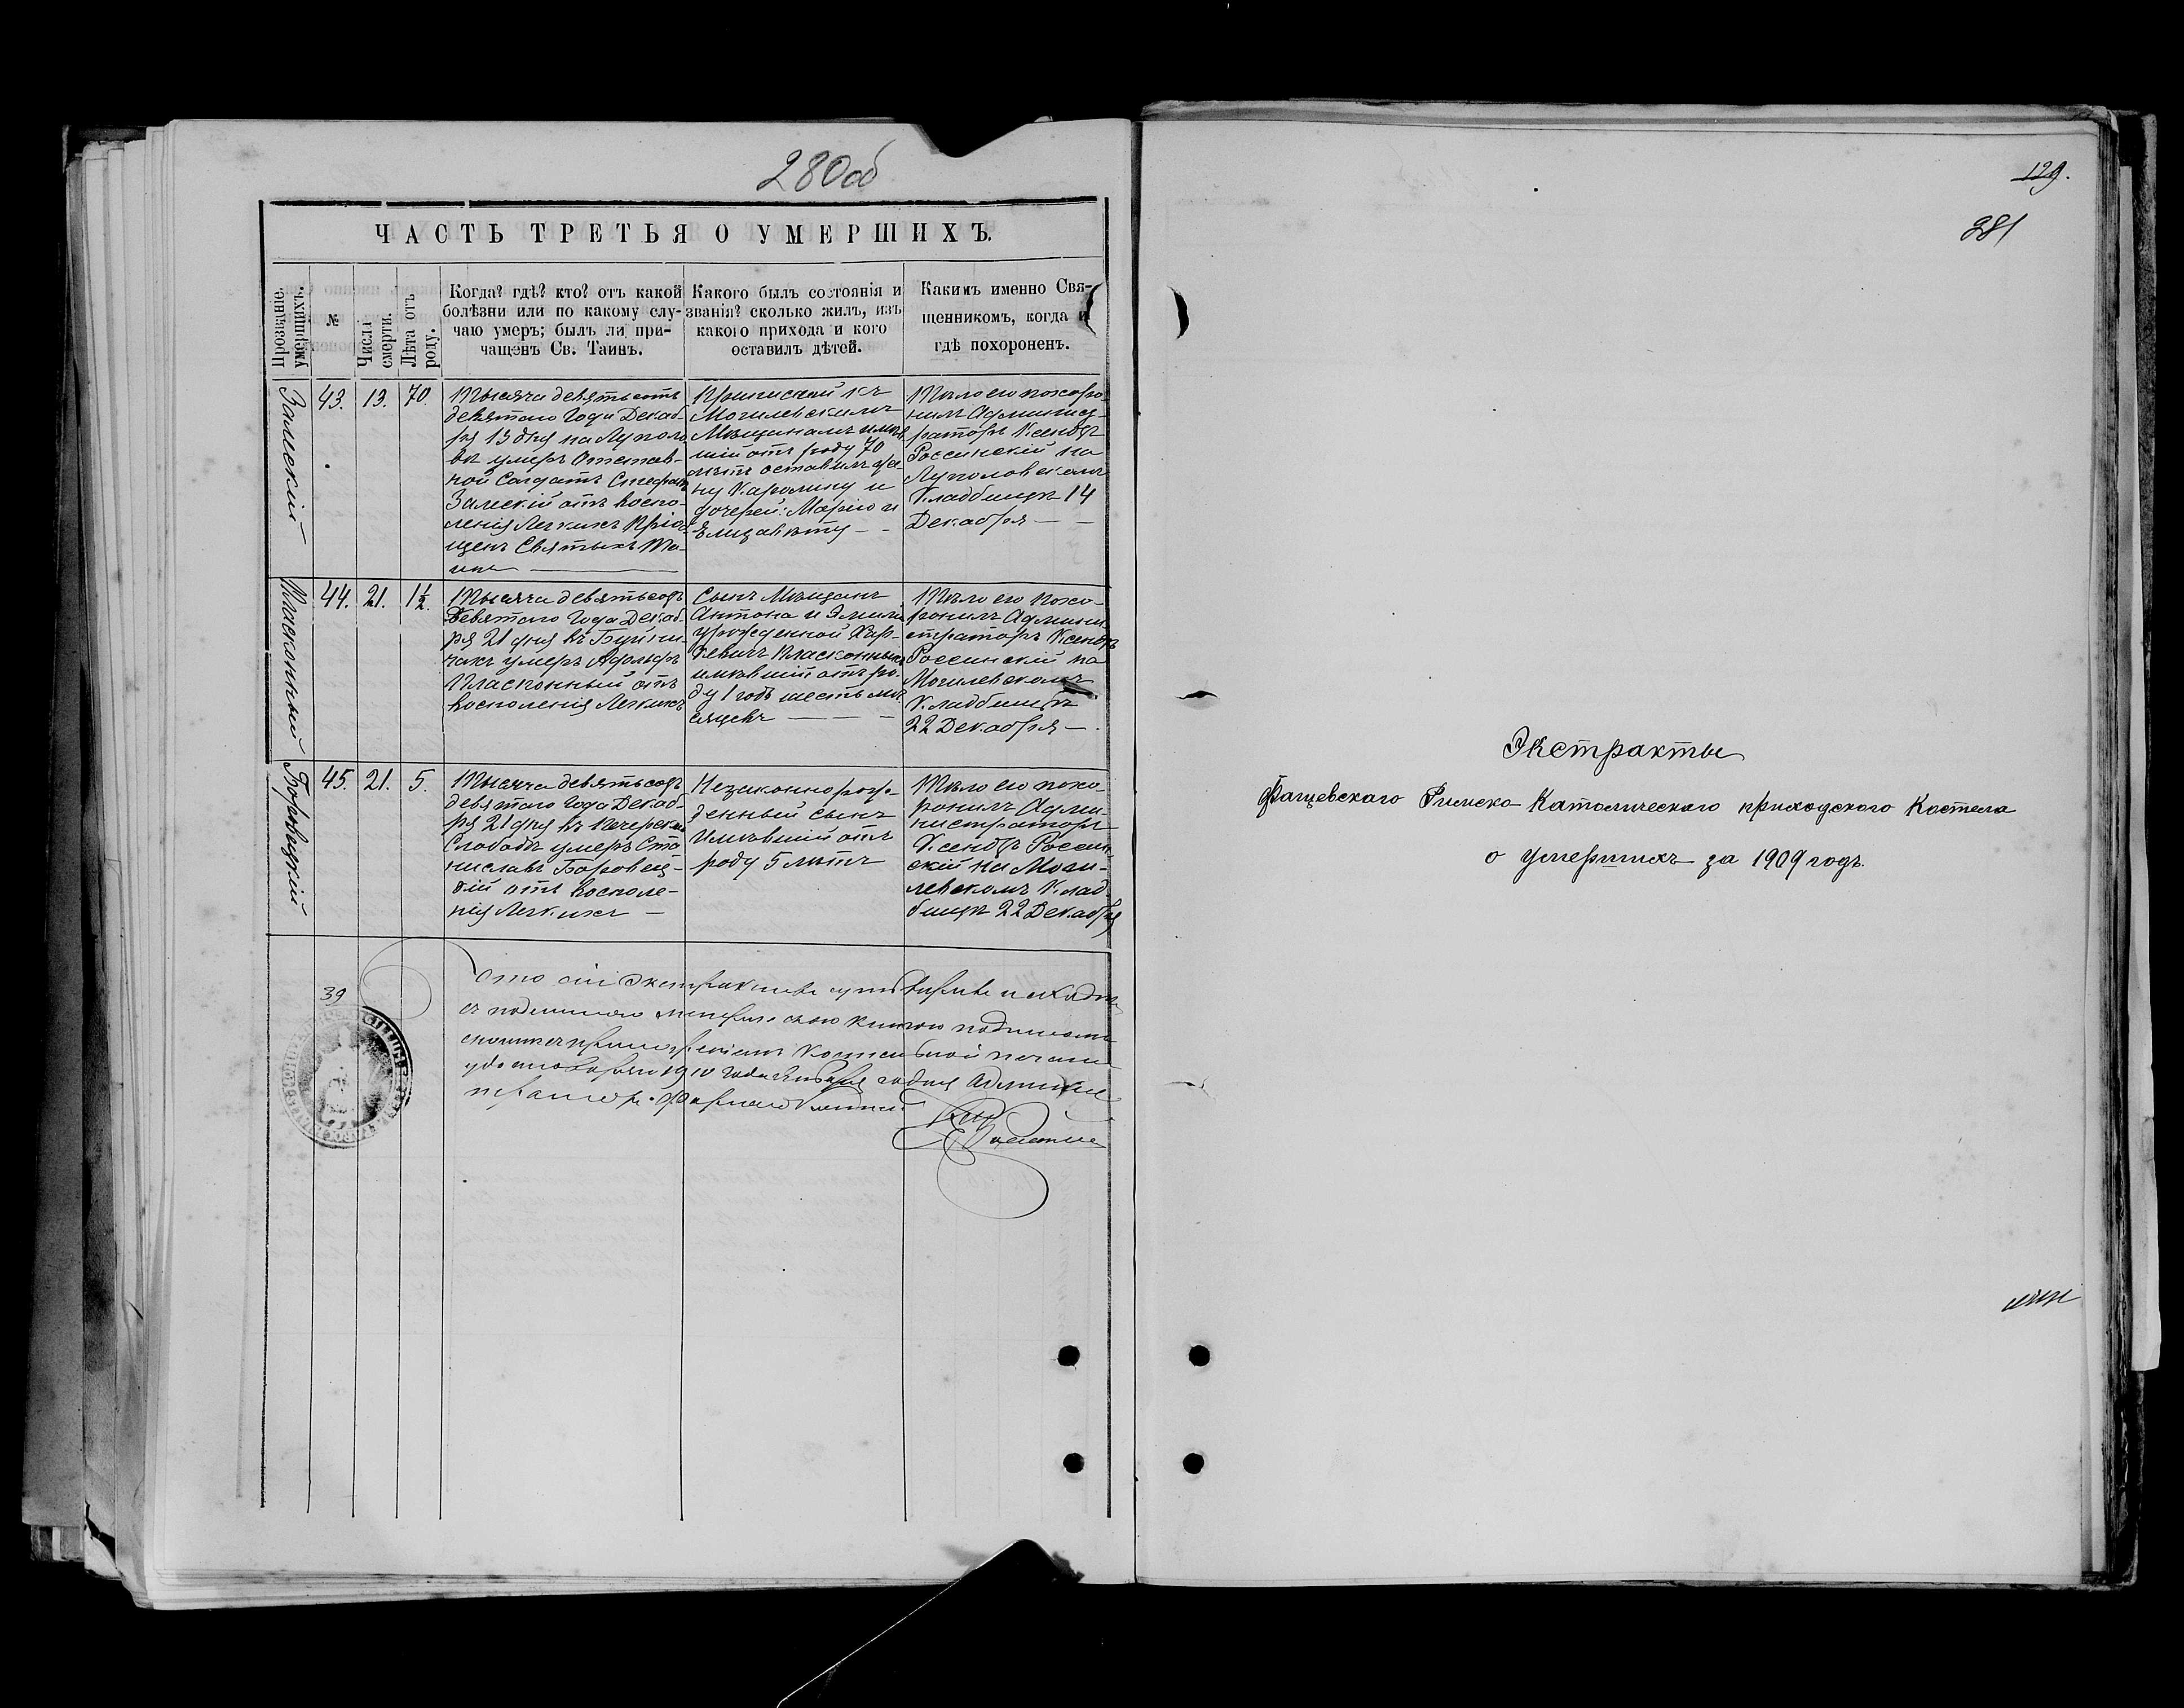 280об
ЧАСТЬ ТРЕТЬЯ О УМЕРШИХЪ.
Прозваніе умершихъ.
№
Числа смерти.
Лѣта отъ роду.
Когда? гдѣ? кто? отъ какой
болѣзни или по какому слу-
чаю умеръ; былъ ли при-
чащенъ Св. Таинъ.
Какого былъ состоянія и
званія? сколько жилъ, изъ
какого прихода и кого
оставилъ дѣтей.
Какимъ именно Свя-
щенникомъ, когда и
гдѣ похороненъ.
Залескій
43.
13.
70.
Тысяча девятьсотъ
девятаго Года Декаб-
ря 13 дня на Луполо
вѣ умеръ Отстав-
ной Солдатъ Стефанъ
Залескій отъ воспа-
ленія Легкихъ Пріоб-
щенъ Святыхъ Та-
инъ
Приписной къ
Могилевскимъ
Мѣщанамъ имѣв
шій отъ роду 70
лѣтъ оставилъ же-
ну Каролину и
дочерей: Марію и
Елизавету —
Тѣло его похоро-
нилъ Админист-
раторъ Ксендзъ
Россинскій на
Луполовскомъ
Кладбищѣ 14
Декабря —
Пласконный
44.
21.
1½.
Тысяча девятьсотъ
Девятаго Года Декаб-
ря 21 дня въ Буйни-
чахъ умеръ Адольфъ
Пласконный отъ
воспаленія Легкихъ
Сынъ Мѣщанъ
Антона и Эмиліи
урожденной Хар-
кевичъ Пласконныхъ
имѣвшій отъ ро-
ду 1 годъ шесть мѣ-
сяцевъ —
Тѣло его похо-
ронилъ Админи-
страторъ Ксендзъ
Россинскій на
Могилевскомъ
Кладбищѣ
22 Декабря —
Боровецкій
45.
21.
5.
Тысяча девятьсотъ
девятаго Года Декаб-
ря 21 дня въ Печерской
Слободѣ умеръ Ста
ниславъ Боровец-
кій отъ воспале-
нія Легкихъ —
Незаконнорож-
денный сынъ
Имѣвшій отъ
роду 5 лѣтъ
Тѣло его похо
ронилъ Адми-
нистраторъ
Ксендзъ Россин-
скій на Моги-
левскомъ Клад
бищѣ 22 Декабря
39
Что сіи Экстракты суть вѣрны и сходны
съ подлинною метрическою книгою подписомъ
1910 года Января
129.
281
Экстракты
Фащевскаго Римско-Католическаго приходскаго Костела
о умершихъ за 1909 годъ.